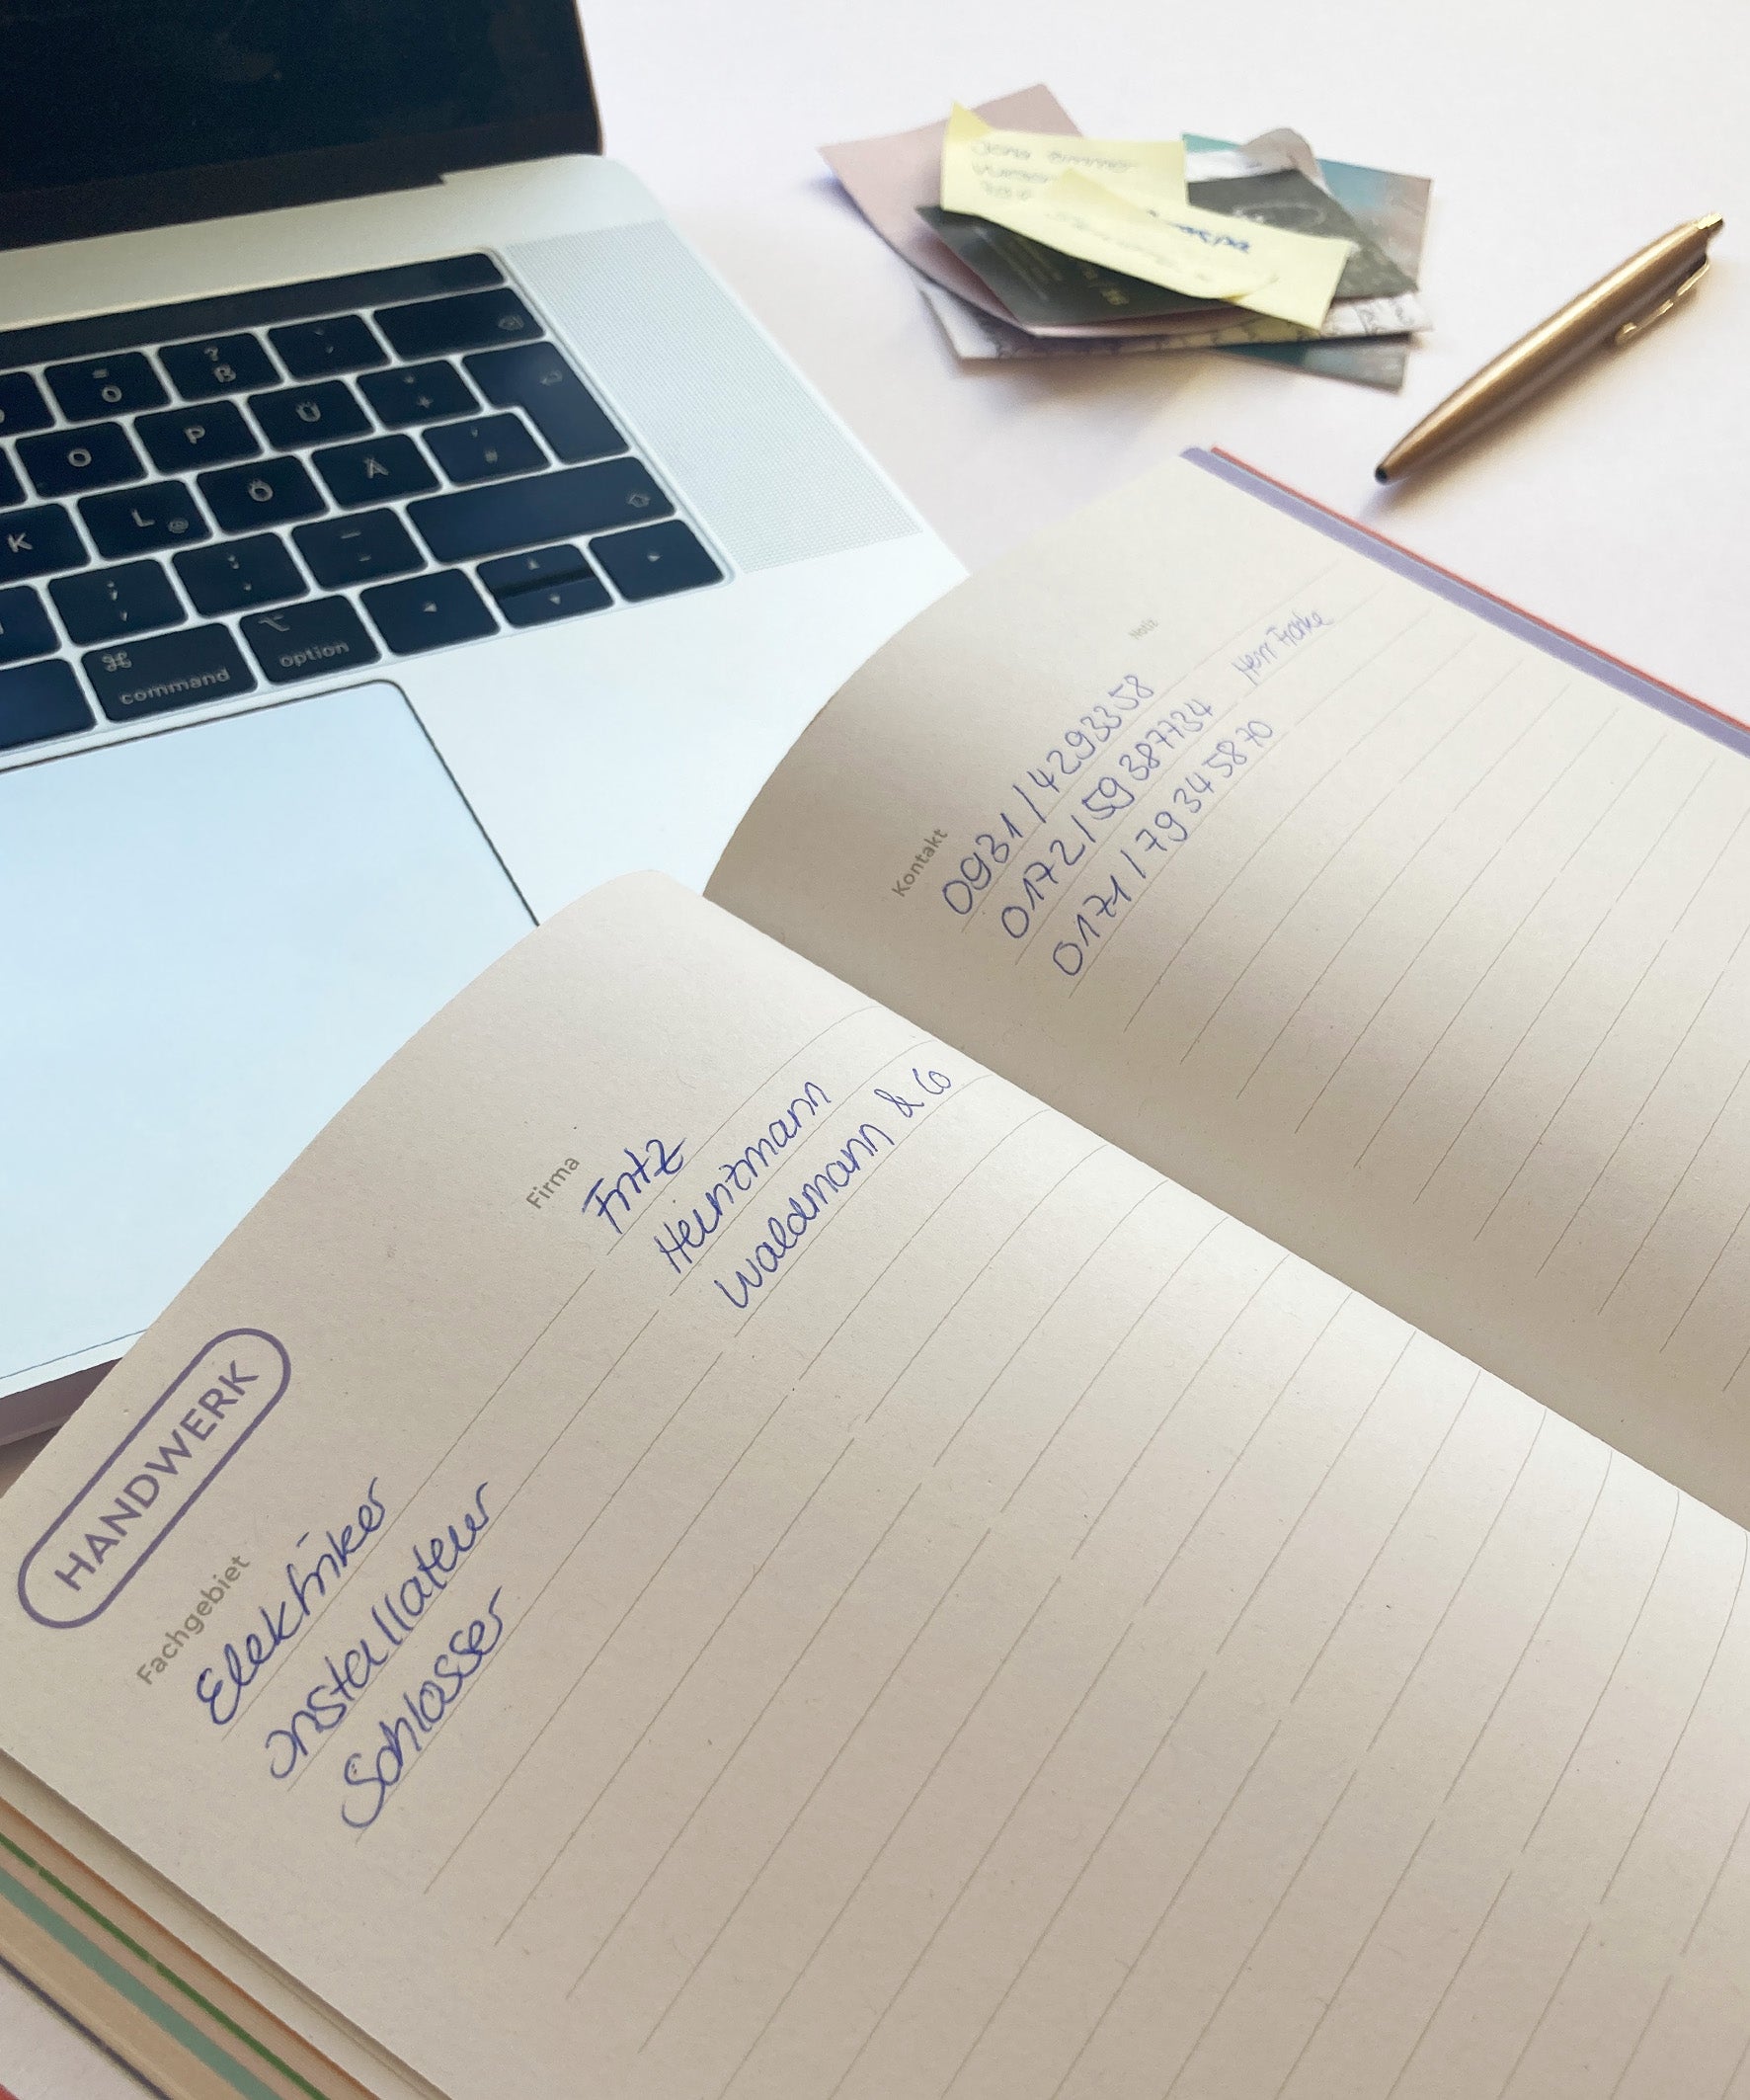 HANDWERK
Fachgebiet Firma Kontakt Notiz
Elektriker Fritz 0931/4293358
Installateur Heinzmann 0172/59387734 Herr Franke
Schlosser Waldmann & Co 0171/79345870
? ß
O P Ü +
K L @ Ö Ä
⌘ command ⌥ option